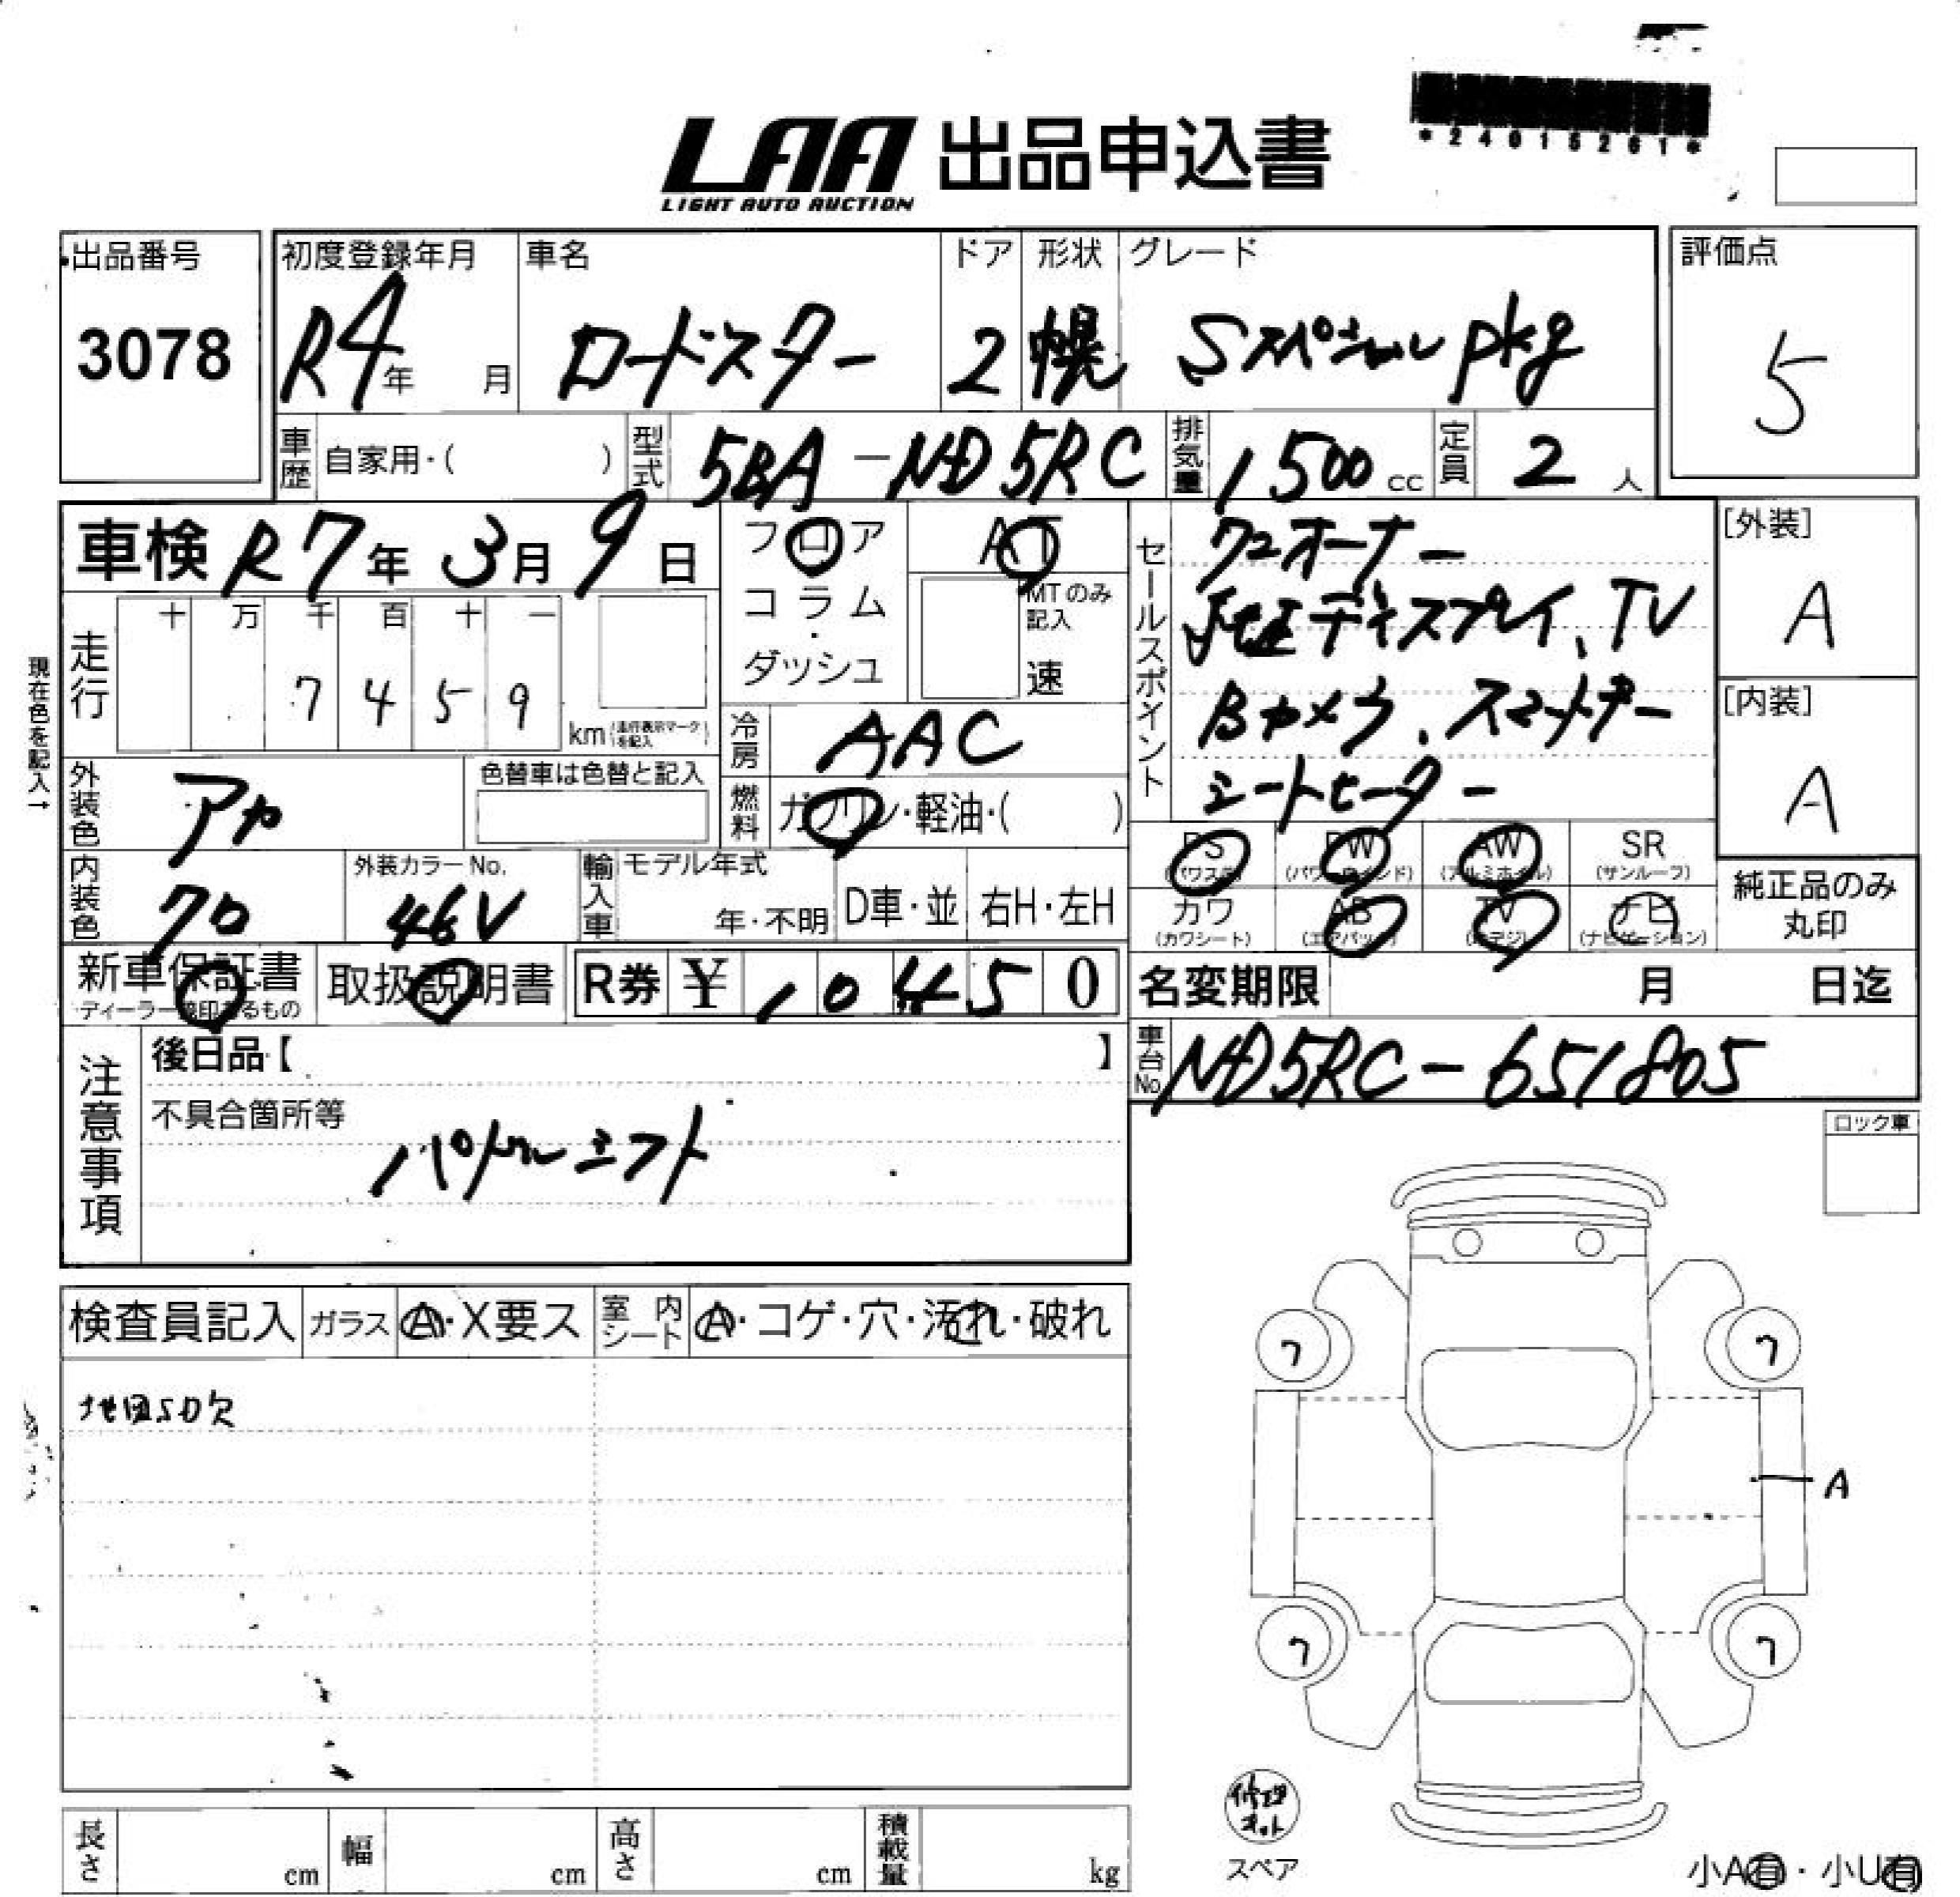 *24015261*
LAA 出品申込書
LIGHT AUTO AUCTION
出品番号
3078
初度登録年月
R4年 月
車名
ロードスター
ドア
2
形状
幌
グレード
Sスペシャルpkg
評価点
5
車歴 自家用・( )
型式 5BA-ND5RC
排気量 1500cc
定員 2人
車検 R7年3月9日
フロア
コラム
・
ダッシュ
AT
MTのみ記入
速
セールスポイント
ワンオーナー
ディスプレイ、TV
Bカメラ、スマートキー
シートヒーター
[外装]
A
[内装]
A
現在色を記入→
走行
十 万 千 百 十 一
7 4 5 9
km(走行表示マークを記入)
冷房 AAC
外装色 アカ
色替車は色替と記入
燃料 ガソリン・軽油・( )
内装色 クロ
外装カラーNo.
46V
輸入車 モデル年式
年・不明
D車・並
右H・左H
PS PW AW SR
(パワステ) (パワーウインド) (アルミホイル) (サンルーフ)
カワ AB TV ナビ
(カワシート) (エアバッグ) (地デジ) (ナビゲーション)
純正品のみ
丸印
新車保証書
取扱説明書
R券 ¥ 10450
名変期限 月 日迄
車台No. ND5RC-651805
注意事項
後日品【 】
不具合箇所等
パドルシフト
ロック車
検査員記入
ガラス A・X要ス
室内シート A・コゲ・穴・汚れ・破れ
地図SD欠
ワ ワ
A
ワ ワ
修理キット
スペア
長さ cm
幅 cm
高さ cm
積載量 kg
小A有・小U有